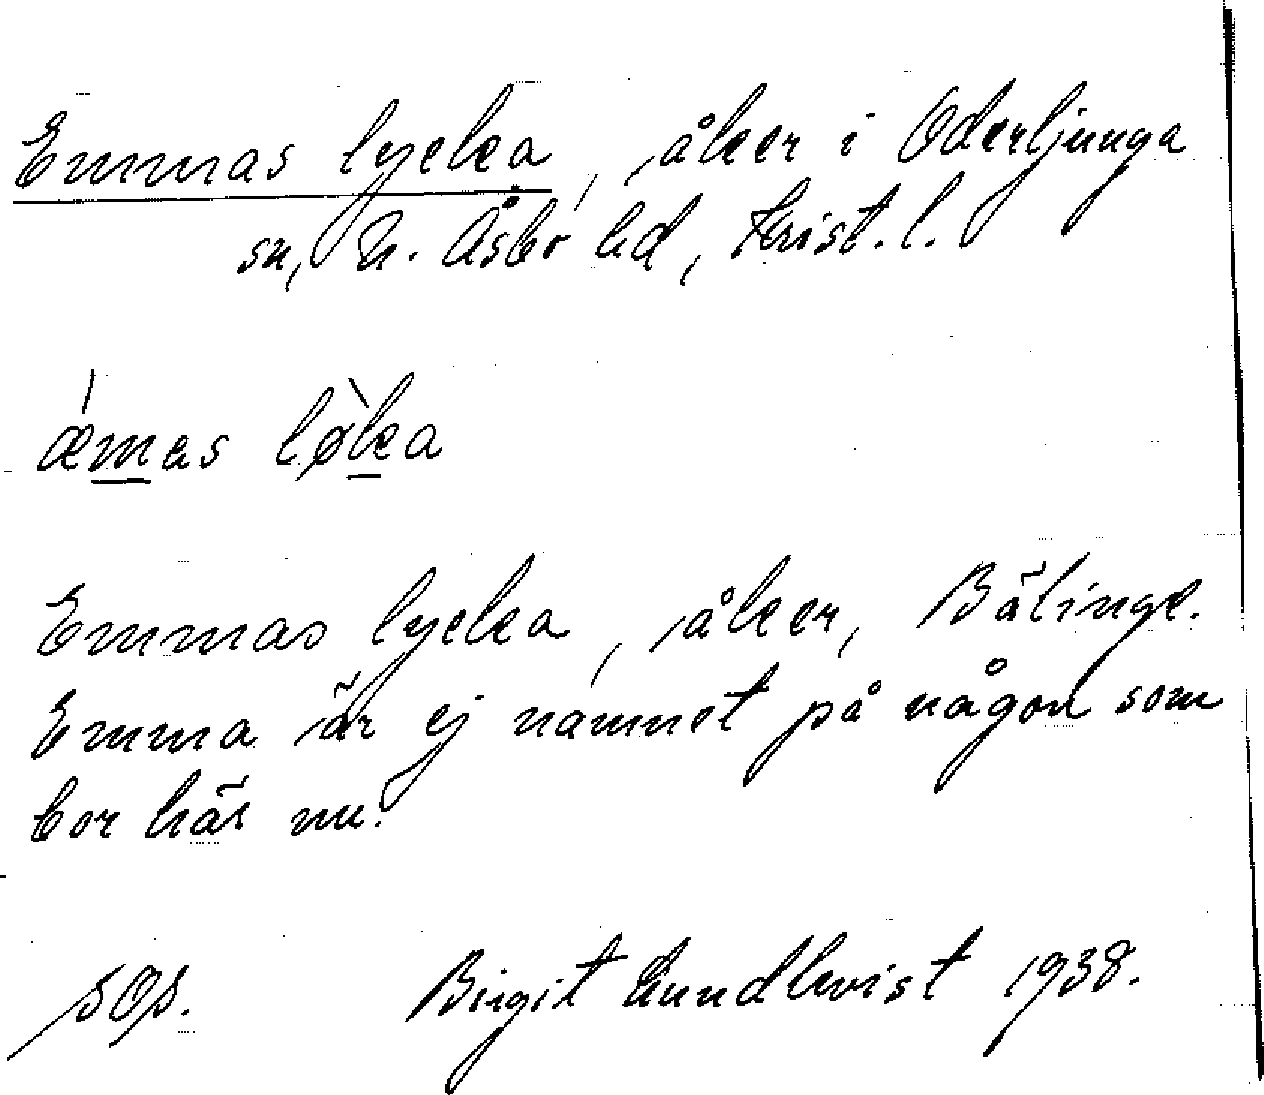 Emmas lycka, åker i Oderljunga
sn, N. Åsbo hd, Krist. l.
æ´mas lø`ka
Emmas lycka, åker, Bälinge.
Emma är ej namnet på någon som
bor här nu.
Birgit Lundkvist 1938.